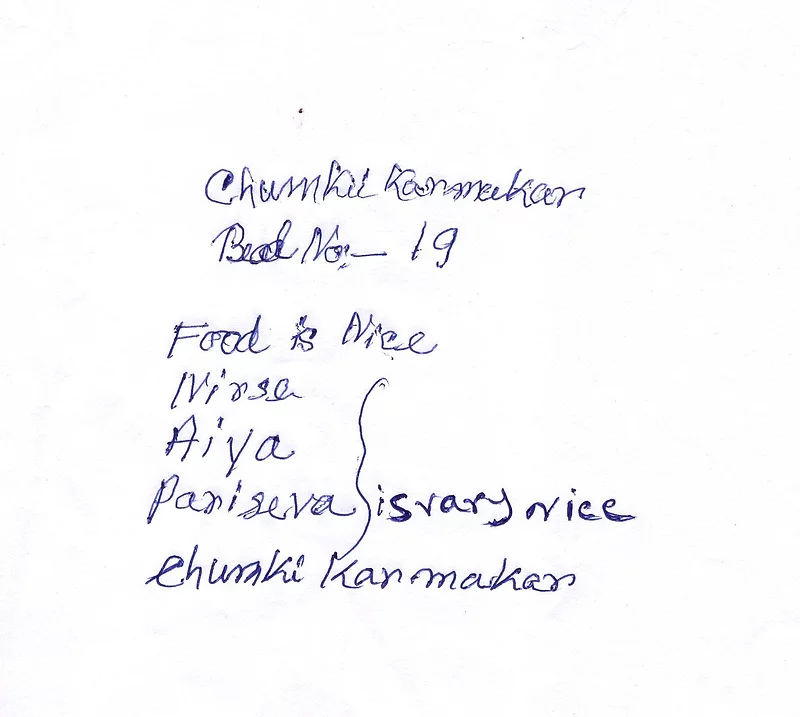 Chumkii Karmakar
Bed No:— 19
Food is Nice
Nirse
Aiya
Pariseva } is vary nice
Chumki Karmakar